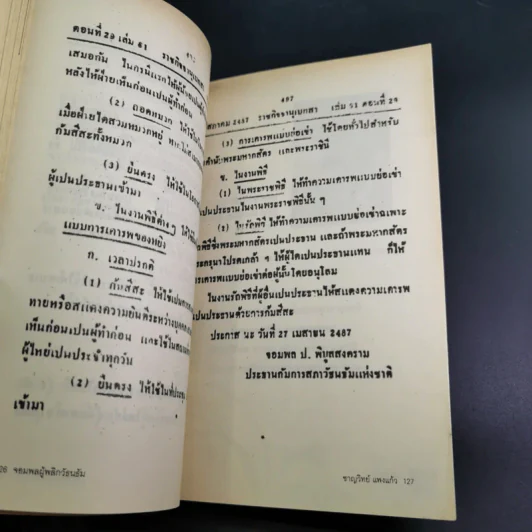 ตอนที่ 29 เล่ม 61 ราชกิจจานุเบกสา
เสมอกัน ในกรนีแรกให้ผู้น้อย
หลังให้ฝ่ายเห็นก่อนเปนผู้ทำก่อน
(2) ถอดหมวก ให้ใช้ใน
เมื่อฝ่ายใดสวมหมวกหยู่
กัมสีสะทั้งหมวก
(3) ยืนตรง ให้ใช้ใน
ผู้เปนประธานเข้ามา
ข. ในงานพิธีต่างๆ ให้
แบบการเคารพของหยิง
ก. เวลาปรกติ
(1) กัมสีสะ ให้ใช้เปน
ทายหรือแสดงความยินดีระหว่างบุคคล
เห็นก่อนเปนผู้ทำก่อน และใช้ใน
ผู้ไหย่เปนประจำทุกวัน
(2) ยืนตรง ให้ใช้ในที่ประชุม
เข้ามา
26 จอมพลผู้พลิกวัธนธัม
487
สภาคม 2487 ราชกิจจานุเบกสา เล่ม 61 ตอนที่ 29
(3) การเคารพแบบย่อเข่า ใช้โดยทั่วไปสำหรับ
คำนับพระมหากสัตร และพระราชินี
ข. ในงานพิธี
(1) ในพระราชพิธี ให้ทำความเคารพแบบย่อเข่า
เปนประธานในงานพระราชพิธีนั้น ๆ
(2) ในรัถพิธี ให้ทำความเคารพแบบย่อเข่าฉเพาะ
รัถพิธีซึ่งพระมหากสัตรเปนประธาน และถ้าพระมหากสัตร
ประกรุนาโปรดเกล้า ๆ ให้ผู้ใดเปนประธานแทน ก็ให้
เคารพแบบย่อเข่าต่อผู้นั้นโดยอนุโลม
ในงานรัถพิธีที่ผู้อื่นเปนประธานให้สแดงความเคารพ
เปนประธานด้วยการกัมสีสะ
ประกาส นะ วันที่ 27 เมสายน 2487
จอมพล ป. พิบูลสงคราม
ประธานกัมการสภาวัธนธัมแห่งชาติ
ชาญวิทย์ แพงแก้ว 127